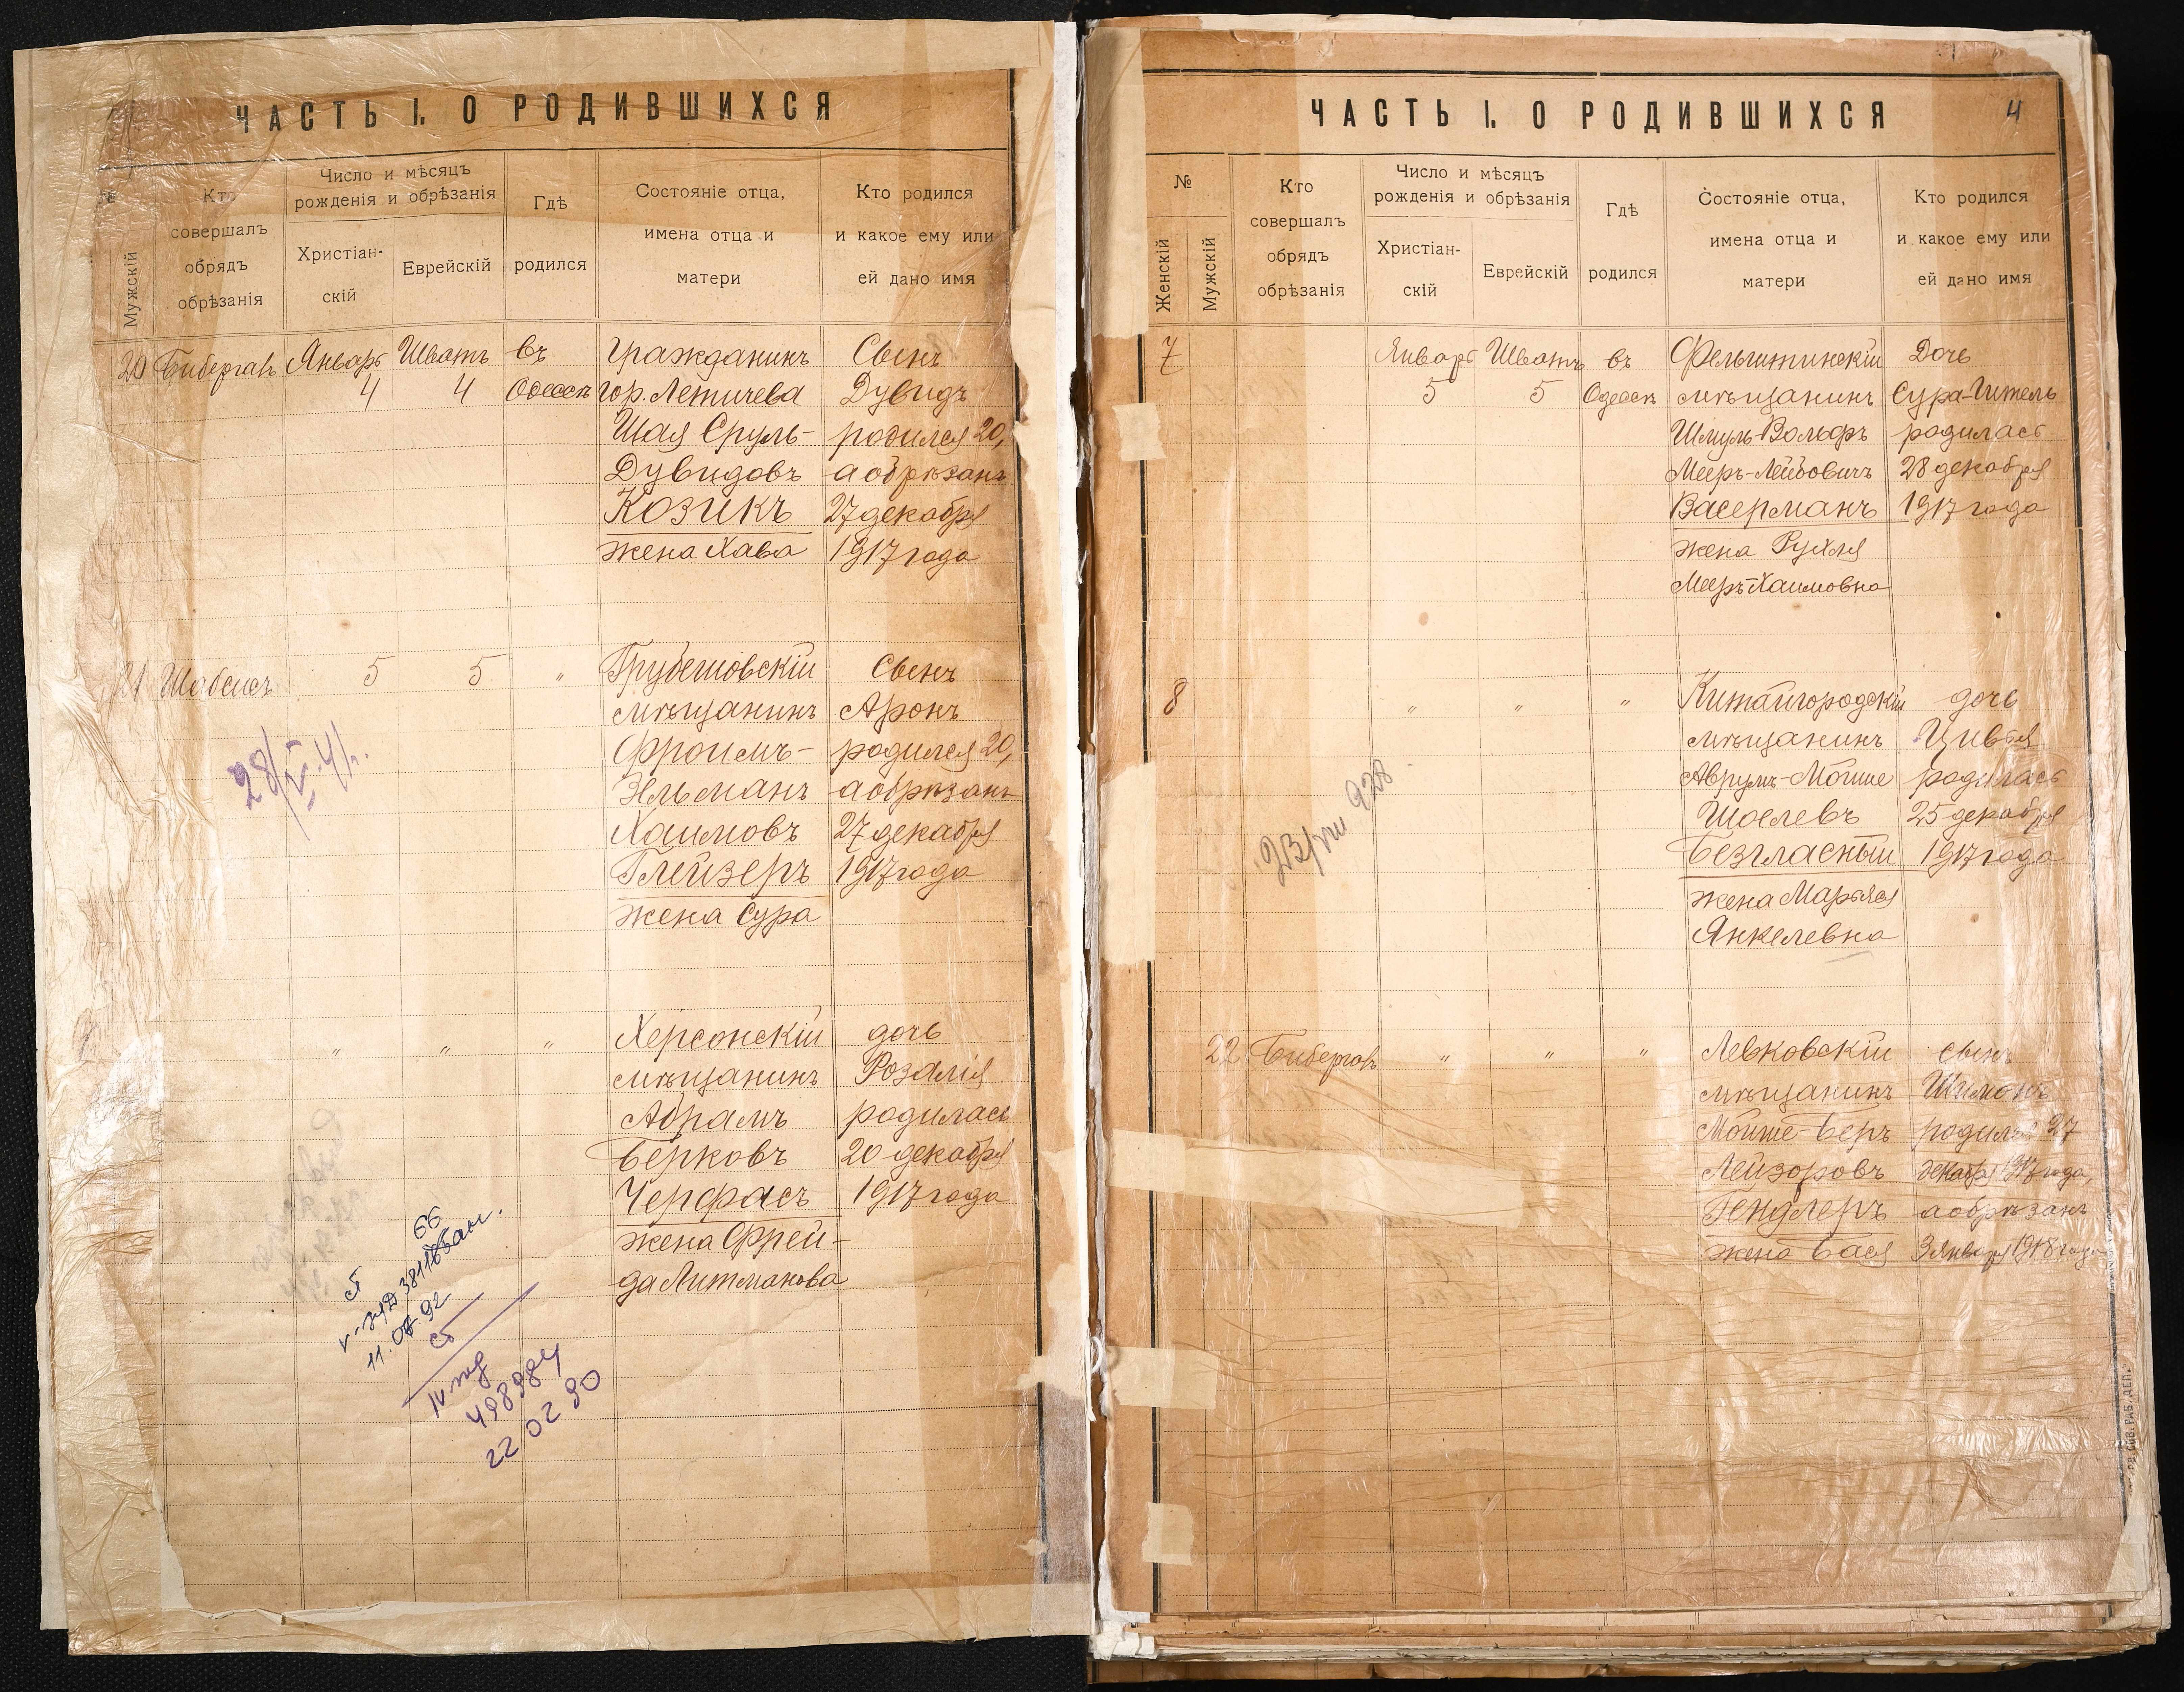 ЧАСТЬ I. О РОДИВШИХСЯ
№
Мужскій
Кто
совершалъ
обрядъ
обрѣзанія
Число и мѣсяцъ
рожденія и обрѣзанія
Христіан-
скій
Еврейскій
Гдѣ
родился
Состояніе отца,
имена отца и
матери
Кто родился
и какое ему или
ей дано имя
20 Бибергалъ Январь Шватъ въ Гражданинъ Сынъ
4 4 Одессѣ гор. Летичева Дувидъ
Шая Сруль- родился 20,
Дувидовъ а обрѣзанъ
Козикъ 27 декабря
жена Хава 1917 года
21 Шабсисъ 5 5 " Грубешовскій Сынъ
мѣщанинъ Аронъ
Фроимъ- родился 20,
Эльманъ а обрѣзанъ
Хаимовъ 27 декабря
Глейзеръ 1917 года
жена Сура
28/V-41.
" " " Херсонскій дочь
мѣщанинъ Розалія
Абрамъ родилась
Берковъ 20 декабря
Черфасъ 1917 года
жена Фрей-
да Литманова
66
11.07.92
498984
22 02 90
ЧАСТЬ I. О РОДИВШИХСЯ
4
№
Женскій
Мужскій
Кто
совершалъ
обрядъ
обрѣзанія
Число и мѣсяцъ
рожденія и обрѣзанія
Христіан-
скій
Еврейскій
Гдѣ
родился
Состояніе отца,
имена отца и
матери
Кто родился
и какое ему или
ей дано имя
7 Январь Шватъ въ Фельштинскій Дочь
5 5 Одессѣ мѣщанинъ Сура-Гитель
Шмуль-Вольфъ родилась
Мееръ-Лейбовичъ 28 декабря
Васерманъ 1917 года
жена Рухля
Мееръ-Хаимовна
8 " " " Китайгородскій дочь
мѣщанинъ Цивья
Аврумъ-Мойше родилась
Шоелевъ 25 декабря
Безгласный 1917 года
жена Марьяся
Янкелевна
23/VIII 928
22 Бибергалъ " " " Левковскій сынъ
мѣщанинъ Шимонъ
Мойше-Беръ родился 27
Лейзоровъ декабря 1917 года,
Гендлеръ а обрѣзанъ
жена Бася 3 января 1918 года